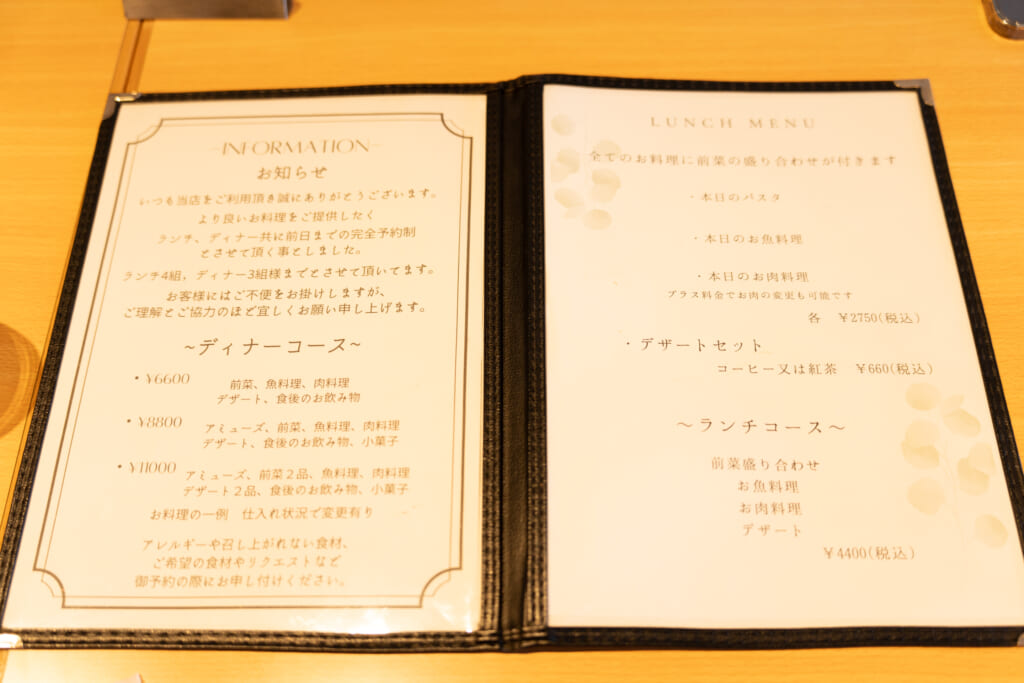 INFORMATION
お知らせ
いつも当店をご利用頂き誠にありがとうございます。
より良いお料理をご提供したく
ランチ、ディナー共に前日までの完全予約制
とさせて頂く事としました。
ランチ4組，ディナー3組様までとさせて頂いてます。
お客様にはご不便をお掛けしますが、
ご理解とご協力のほど宜しくお願い申し上げます。
~ディナーコース~
・¥6600 前菜、魚料理、肉料理
デザート、食後のお飲み物
・¥8800 アミューズ、前菜、魚料理、肉料理
デザート、食後のお飲み物、小菓子
・¥11000 アミューズ、前菜２品、魚料理、肉料理
デザート２品、食後のお飲み物、小菓子
お料理の一例 仕入れ状況で変更有り
アレルギーや召し上がれない食材、
ご希望の食材やリクエストなど
御予約の際にお申し付けください。
LUNCH MENU
全てのお料理に前菜の盛り合わせが付きます
・本日のパスタ
・本日のお魚料理
・本日のお肉料理
プラス料金でお肉の変更も可能です
各 ¥2750(税込)
・デザートセット
コーヒー又は紅茶 ¥660(税込)
～ランチコース～
前菜盛り合わせ
お魚料理
お肉料理
デザート
¥4400(税込)